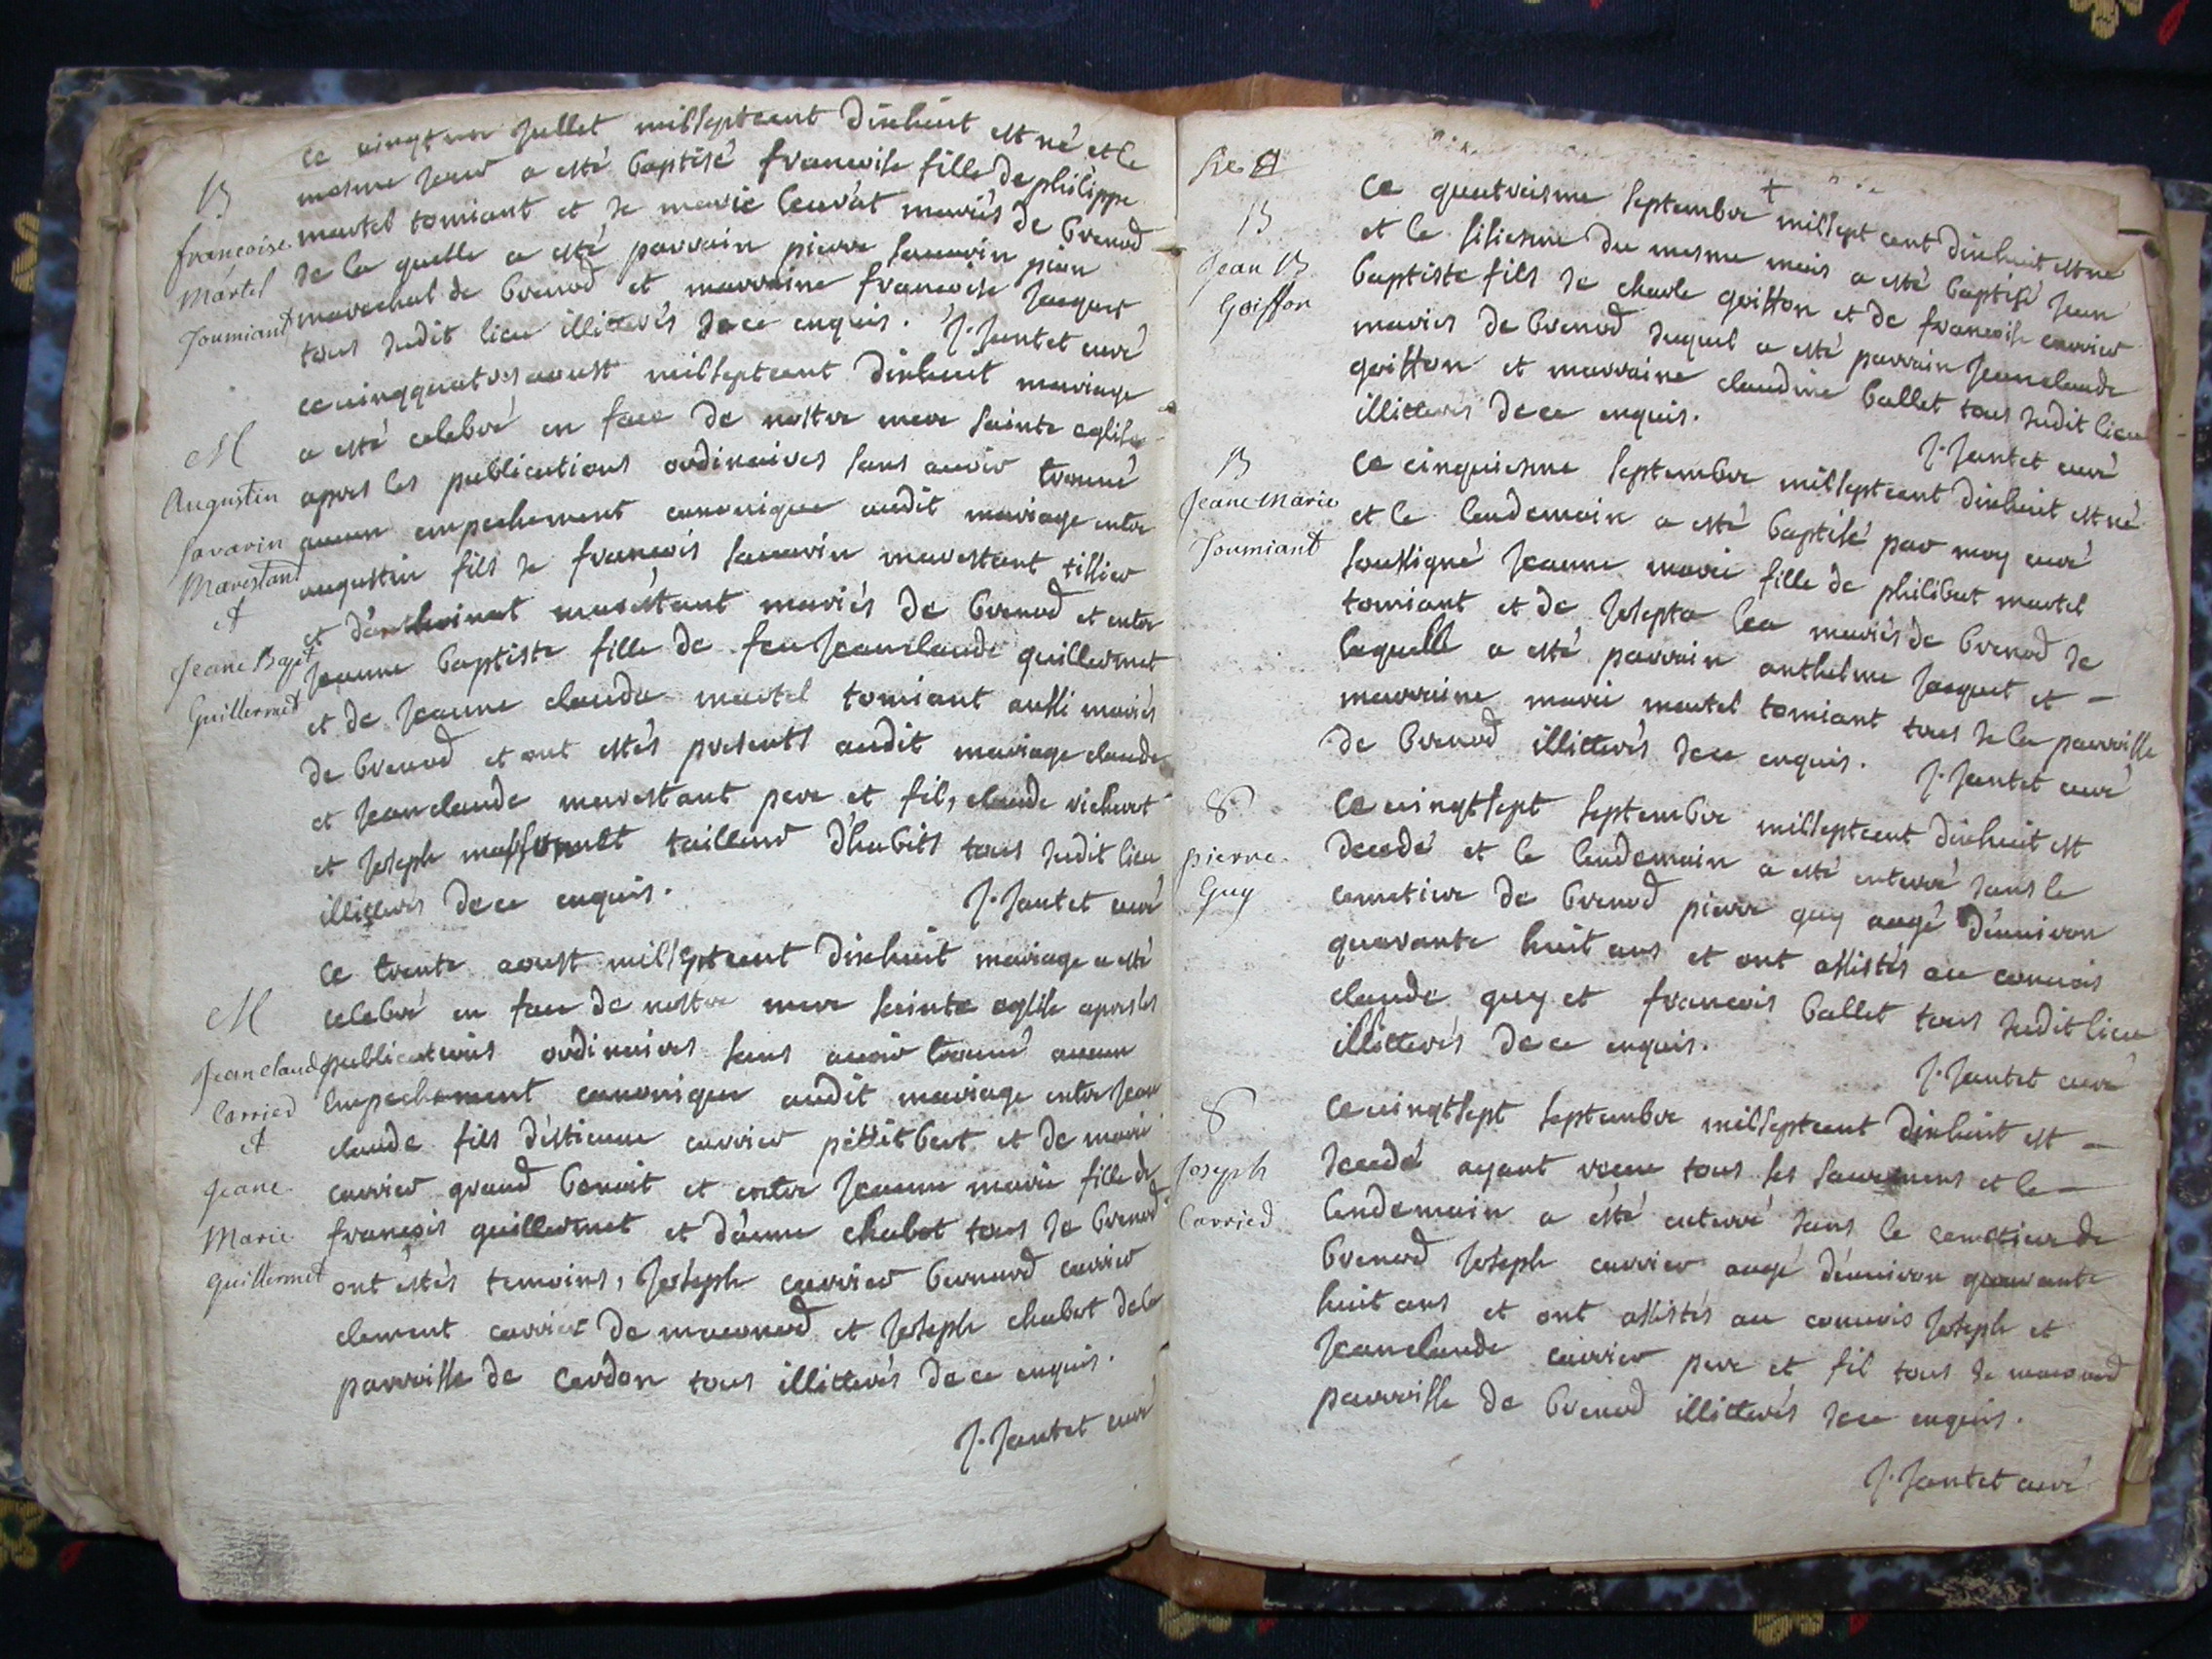 B
francoise
Martel
Joumiant
ce vingt un Jullet mil sept cent dixhuit est né et le
mesme jour a esté baptisé francoise fille de philippe
martel tomiant et de marie leurat mariés de brenod
de la quelle a esté parrain pierre savarin pion
marechal de brenod et marraine francoise Jacquet
tous dudit lieu illitterés de ce enquis. J. Jantet curé
M
Augustin
Savarin
Marestant
et
Jeane Bapt
Guillermet
ce vingquatres aoust mil sept cent dixhuit mariage
a esté celebré en face de nostre mere sainte eglise
apres les publications ordinaires sans avoir trouvé
aucun empechement canonique audit mariage entre
augustin fils de francois savarin marestant tissier
et d'antheinat marestant mariés de brenod et entre
Jeanne baptiste fille de feu Jeanclaude guillermet
et de Jeanne claude martel tomiant aussi mariés
de brenod et ont estés presents audit mariage claude
et Jeanclaude marestant pere et fil, claude richert
et Joseph tailleur d'habits tous dudit lieu
illitterés de ce enquis. J. Jantet curé
M
Jean claude
Carried
et
Jeane
Marie
Guillermet
ce trente aoust mil sept cent dixhuit mariage a esté
celebré en face de nostre mere sainte eglise apres les
publications ordinaires sans avoir trouvé aucun
empechement canonique audit mariage entre Jean
claude fils d'estienne carrier pettit bert et de marie
carrier grand benoit et entre Jeanne marie fille de
françois guillermet et d'anne chabot tous de brenod
ont estés temoins, Joseph carrier bernard carrier
clement carrier de maconod et Joseph chabot de la
parroisse de Cerdon tous illitterés de ce enquis.
J. Jantet curé
B
Jean B
Goiffon
ce quatreisme septembre + mil sept cent dixhuit est né
et le sisiesme du mesme mois a esté baptisé Jean
baptiste fils de charle goiffon et de francoise carrier
mariés de brenod duquel a esté parrain Jeanclaude
goiffon et marraine claudine ballet tous dudit lieu
illitterés de ce enquis.
J. Jantet curé
B
Jeane Marie
Joumiant
ce cinquiesme septembre mil sept cent dixhuit est né
et le lendemain a esté baptisé par moy curé
soussigné Jeanne marie fille de philibert martel
tomiant et de Josepta lea mariés de brenod de
laquelle a esté parrain anthelme Jacquet et –
marraine marie martel tomiant tous de la parroisse
de brenod illitterés de ce enquis. J. Jantet curé
S
pierre
Guy
ce vingtsept septembre mil sept cent dixhuit est
decedé et le lendemain a esté enterré dans le
cemetiere de brenod pierre guy aagé d'environ
quarante huit ans et ont assistés au convois
claude guy et francois ballet tous dudit lieu
illitterés de ce enquis.
J. Jantet curé
S
Joseph
Carried
ce vingtsept septembre mil sept cent dixhuit est –
decedé ayant receu tous ses sacremens et le –
lendemain a esté enterré dans le cemetiere de
brenod Joseph carrier aagé d'environ quarante
huit ans et ont assistés au convois Joseph et
Jeanclaude carrier pere et fil tous de maconod
parroisse de brenod illitterés de ce enquis.
J. Jantet curé